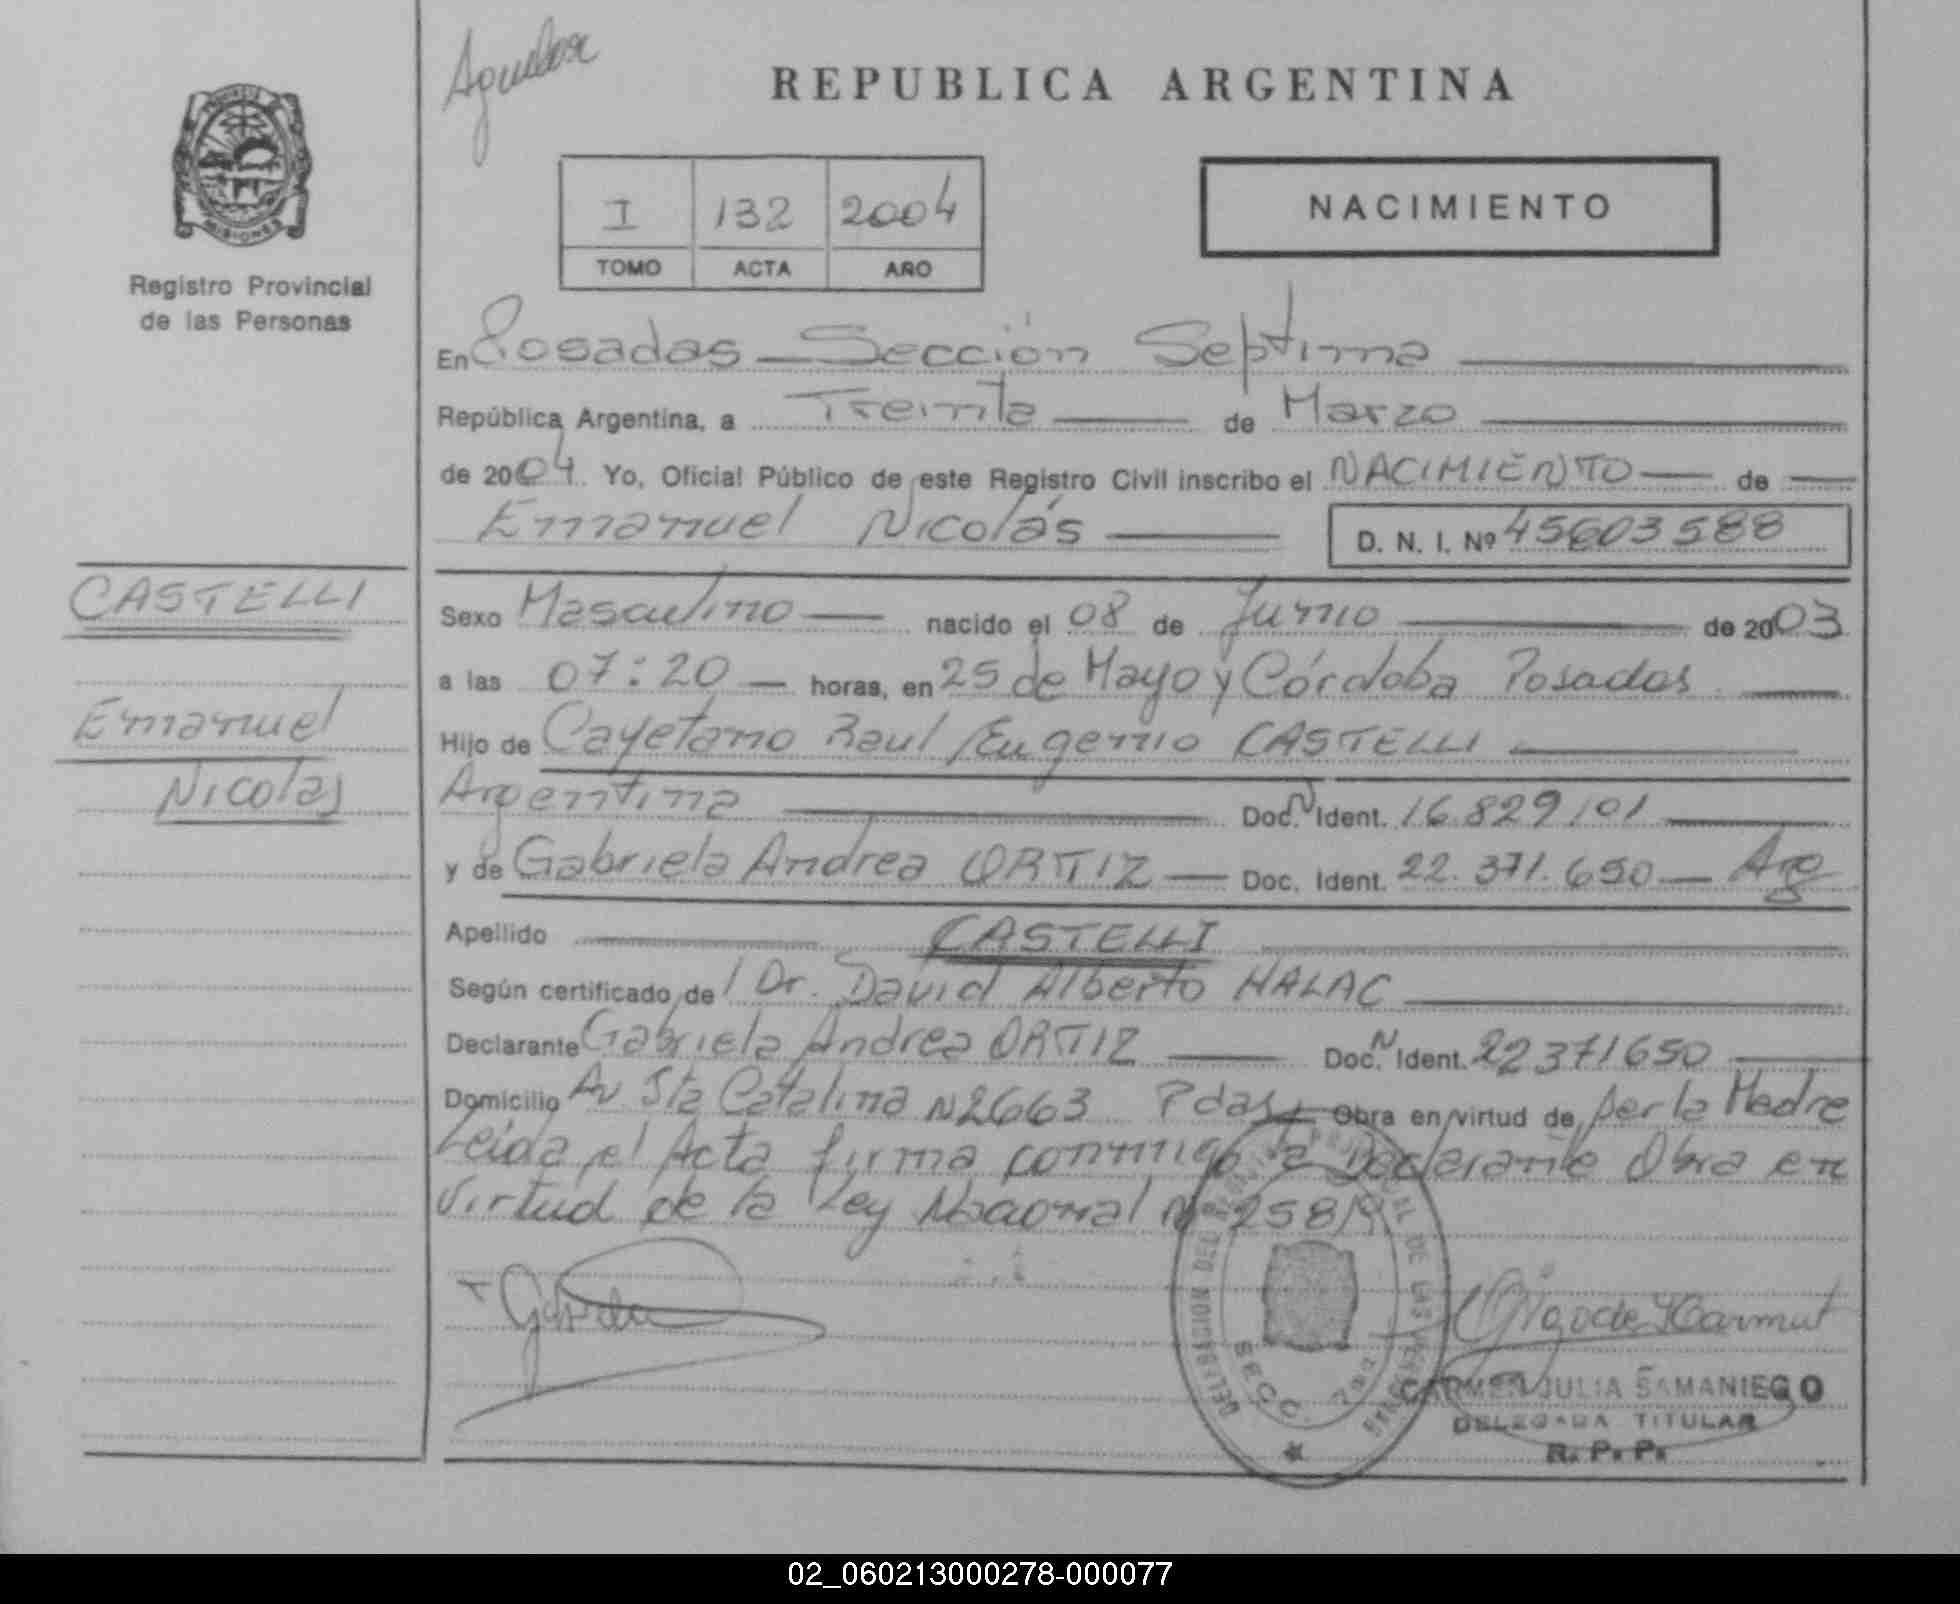 Aguilar
REPUBLICA ARGENTINA
MISIONES
Registro Provincial
de las Personas
I 132 2004
TOMO ACTA AÑO
NACIMIENTO
En Posadas - Sección Septima
República Argentina, a Treinta de Marzo
de 2004. Yo, Oficial Público de este Registro Civil inscribo el NACIMIENTO de
Emanuel Nicolás D. N. I. Nº 45603588
CASTELLI
Emanuel
Nicolás
Sexo Masculino nacido el 08 de Junio de 2003
a las 07:20 horas, en 25 de Mayo y Córdoba Posadas
Hijo de Cayetano Raul Eugenio CASTELLI
Argentina Doc. N Ident. 16.829101
y de Gabriela Andrea ORTIZ Doc. Ident. 22.371.650 Arg
Apellido CASTELLI
Según certificado de l Dr. David Alberto HALAC
Declarante Gabriela Andrea ORTIZ Doc. N Ident. 22371650
Domicilio Av Sta Catalina N 2663 Pdas Obra en virtud de ser la Madre
Leida el Acta firma conmigo la Declarante Obra en
virtud de la Ley Nacional N 258
DELEGACION DEL REGISTRO PROVINCIAL DE LAS PERSONAS
SECC. 7ma
CARMEN JULIA SAMANIEGO
DELEGADA TITULAR
R. P. P.
02_060213000278-000077